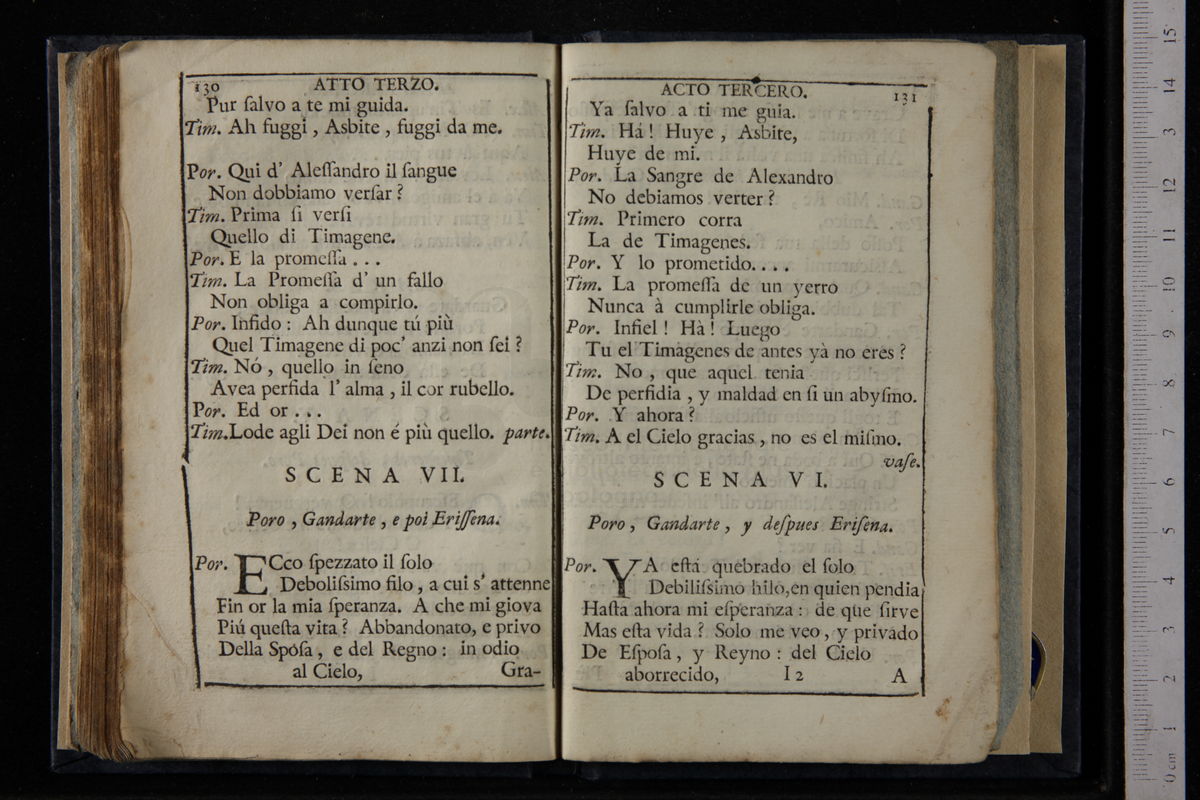 130 ATTO TERZO.
Pur ſalvo a te mi guida.
Tim. Ah fuggi , Asbite , fuggi da me.
Por. Qui d' Aleſſandro il ſangue
Non dobbiamo verſar ?
Tim. Prima ſi verſi
Quello di Timagene.
Por. E la promeſſa . . .
Tim. La Promeſſa d' un fallo
Non obliga a compirlo.
Por. Infido : Ah dunque tú più
Quel Timagene di poc' anzi non ſei ?
Tim. Nó , quello in ſeno
Avea perfida l' alma , il cor rubello.
Por. Ed or . . .
Tim.Lode agli Dei non é più quello. parte.
SCENA VII.
Poro , Gandarte , e poi Eriſſena.
Por. ECco ſpezzato il ſolo
Deboliſsimo filo , a cui s' attenne
Fin or la mia ſperanza. A che mi giova
Piú queſta vita ? Abbandonato, e privo
Della Spoſa , e del Regno : in odio
al Cielo, Gra-
ACTO TERCERO. 131
Ya ſalvo a ti me guia.
Tim. Há ! Huye , Asbite,
Huye de mi.
Por. La Sangre de Alexandro
No debiamos verter ?
Tim. Primero corra
La de Timagenes.
Por. Y lo prometido. . . .
Tim. La promeſſa de un yerro
Nunca à cumplirle obliga.
Por. Infiel ! Hà ! Luego
Tu el Timagenes de antes yà no eres ?
Tim. No , que aquel tenia
De perfidia , y maldad en ſi un abyſmo.
Por. Y ahora ?
Tim. A el Cielo gracias , no es el miſmo.
vaſe.
SCENA VI.
Poro, Gandarte, y deſpues Eriſena.
Por. YA eſtá quebrado el ſolo
Debiliſsimo hilo,en quien pendia
Haſta ahora mi eſperanza : de que ſirve
Mas eſta vida ? Solo me veo , y privado
De Eſpoſa , y Reyno : del Cielo
aborrecido, I 2 A
15
14
13
12
11
10
9
8
7
6
5
4
3
2
1
0 cm